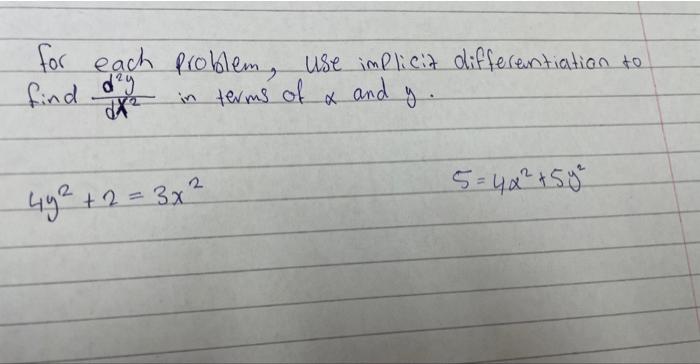 for each problem, use implicit differentiation to
find d²y/dx² in terms of x and y.
4y² + 2 = 3x²
5 = 4x² + 5y²